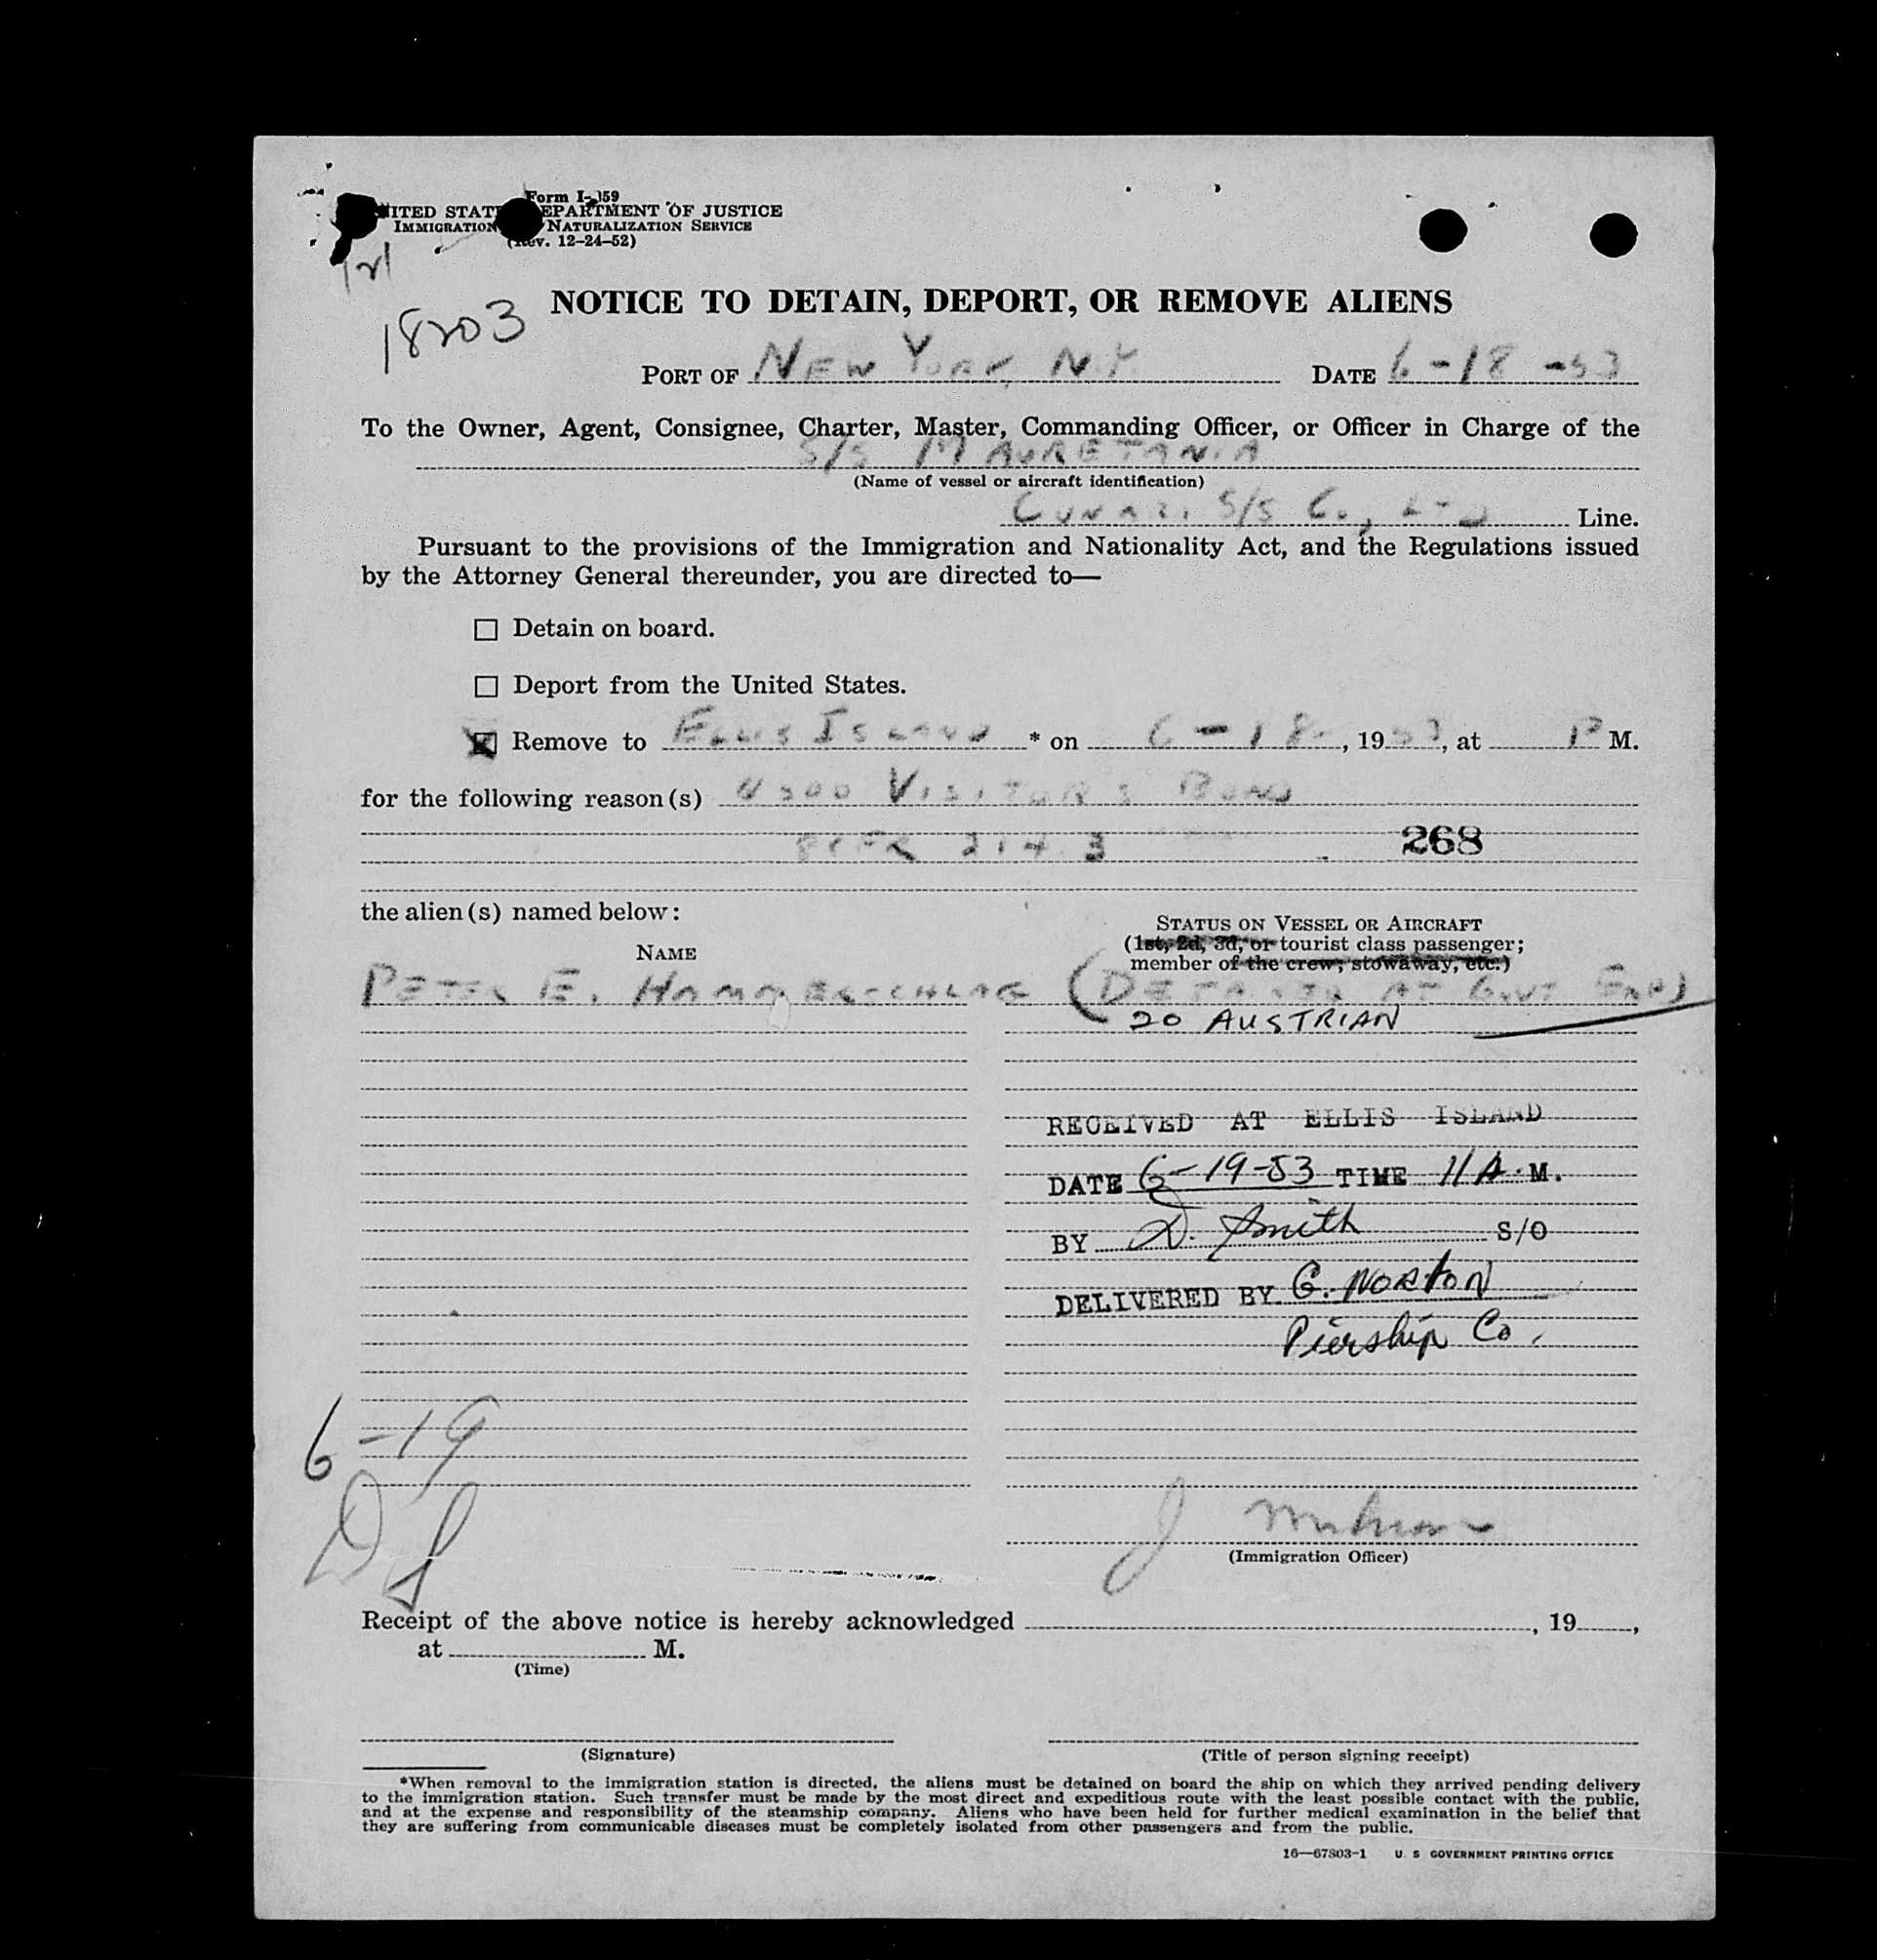 Form I-259
UNITED STATES DEPARTMENT OF JUSTICE
IMMIGRATION NATURALIZATION SERVICE
(Rev. 12-24-52)
18203
NOTICE TO DETAIN, DEPORT, OR REMOVE ALIENS
PORT OF NEW YORK, N.Y. DATE 6-18-53
To the Owner, Agent, Consignee, Charter, Master, Commanding Officer, or Officer in Charge of the
S/S MAURETANIA
(Name of vessel or aircraft identification)
CUNARD S/S Co., LTD Line.
Pursuant to the provisions of the Immigration and Nationality Act, and the Regulations issued
by the Attorney General thereunder, you are directed to—
Detain on board.
Deport from the United States.
Remove to ELLIS ISLAND * on 6-18-, 1953, at P M.
for the following reason(s) VISITOR'S BOND
8 CFR 214.3
268
the alien(s) named below:
STATUS ON VESSEL OR AIRCRAFT
(1st, 2d, 3d, or tourist class passenger;
NAME
member of the crew; stowaway, etc.)
PETER E. HAMMERSCHLAG (DETAINED AT GOVT EXP)
20 AUSTRIAN
RECEIVED AT ELLIS ISLAND
DATE 6-19-53 TIME 11 A.M.
BY D. Smith S/O
DELIVERED BY G. NORTON
Piership Co.
6-19
DS
J
(Immigration Officer)
Receipt of the above notice is hereby acknowledged , 19 ,
at M.
(Time)
(Signature) (Title of person signing receipt)
*When removal to the immigration station is directed, the aliens must be detained on board the ship on which they arrived pending delivery
to the immigration station. Such transfer must be made by the most direct and expeditious route with the least possible contact with the public,
and at the expense and responsibility of the steamship company. Aliens who have been held for further medical examination in the belief that
they are suffering from communicable diseases must be completely isolated from other passengers and from the public.
16—67803-1 U. S GOVERNMENT PRINTING OFFICE